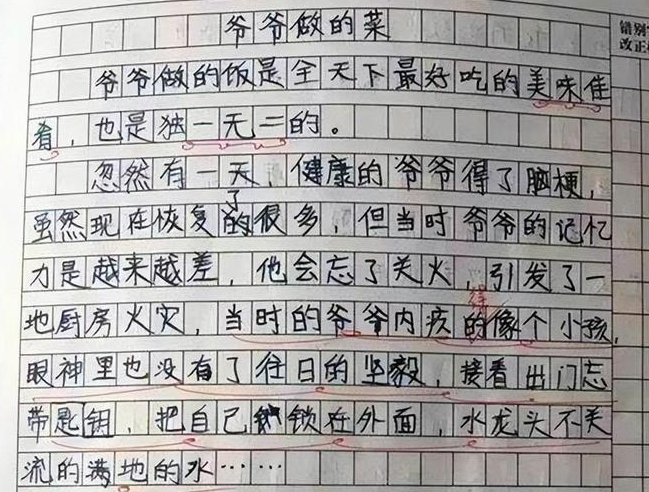 爷爷做的菜
错别
改正
爷爷做的饭是全天下最好吃的美味佳
肴，也是独一无二的。
忽然有一天，健康的爷爷得了脑梗，
虽然现在恢复的了很多，但当时爷爷的记忆
力是越来越差，他会忘了关火，引发了一
得
地厨房火灾，当时的爷爷内疚的像个小孩，
眼神里也没有了往日的坚毅，接着出门忘
带匙钥，把自己锁在外面，水龙头不关
流的满地的水……